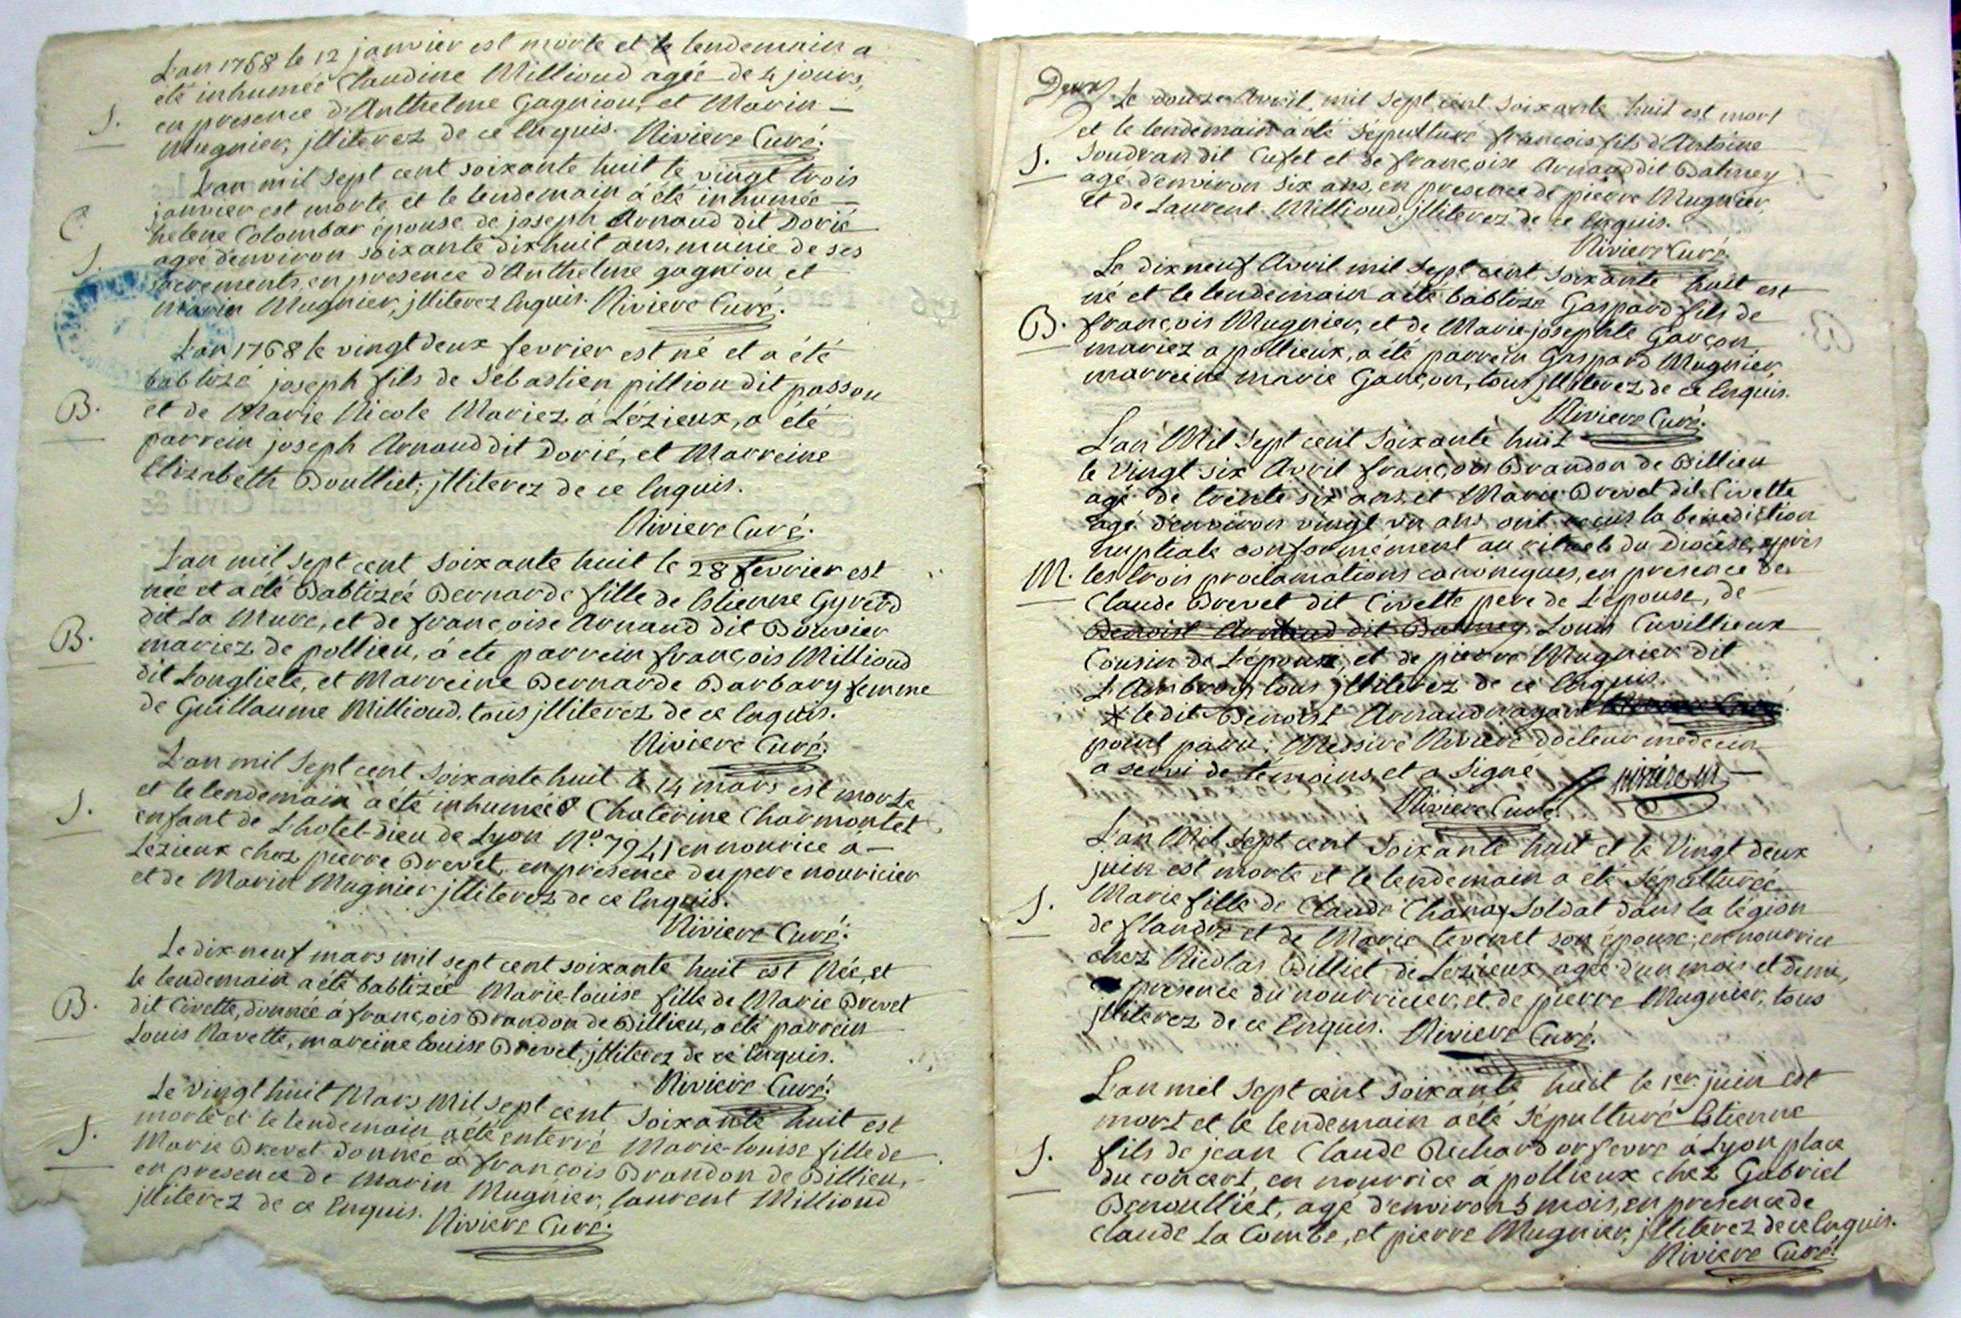 L'an 1768 le 12 janvier est morte et le lendemain a
été inhumée Claudine Millioud agée de 4 jours,
en presence d'Anthelme Gagniou, et Marin
S.
Mugnier, jlliterez de ce Enquis. Riviere Curé.
L'an mil sept cent soixante huit le vingt trois
janvier est morte et le lendemain à été inhumée
C.
helene Colombar épouse de joseph Arnaud dit Dorié
agée d'environ soixante dixhuit ans, munie de ses
S.
sacrements, en presence d'Anthelme gagniou et
Marin Mugnier, jlliterez Enquis. Riviere Curé.
L'an 1768 le vingtdeux fevrier est né et a été
babtizé joseph fils de Sebastien pillion dit passou
B.
et de Marie Nicole Mariez à Lézieux, a été
parrein joseph Arnaud dit Dorié, et Marreine
Elizabeth Doulliet; jlliterez de ce Enquis.
Riviere Curé.
L'an mil sept cent soixante huit le 28 fevrier est
née et a été Babtizée Bernarde fille de Estienne Gyrerd
dit La Mure, et de françoise Arnaud dit Bouvier
B.
mariez de pollieu, à ete parrein françois Millioud
dit Longliete, et Marreine Bernarde Barbary femme
de Guillaume Millioud, tous jlliterez de ce Enquis.
Riviere Curé.
L'an mil sept cent soixante huit le 14 mars est morte
et le lendemain a été inhumée Chaterine Charmontet
S.
enfant de L'hotel-dieu de Lyon No. 7941 en nourice a
Lézieux chez pierre Brevet, en presence du pere nouricier
et de Marin Mugnier jlliterez de ce Enquis.
Riviere Curé.
Le dix neuf mars mil sept cent soixante huit est Née, et
le lendemain a été babtizée Marie-louise fille de Marie Brevet
B.
dit Civette, donnée à françois Brandon de Billieu, a été parrein
Louis Ravette, mareine louise Brevet, jlliterez de ce Enquis.
Riviere Curé.
Le vingt huit Mars mil sept cent soixante huit est
morte et le lendemain a été enterré Marie-louise fille de
S.
Marie Brevet donnée à françois Brandon de Billieu,
en presence de Marin Mugnier, laurent Millioud
jlliterez de ce Enquis. Riviere Curé.
Deux
Le douze Avril mil sept cent soixante huit est mort
et le lendemain a été sépulturé françois fils d'Antoine
S.
Soudran dit Cufet et de françoise Arnaud dit Balmey
agé d'environ six ans, en presence de pierre Mugnier,
et de Laurent Millioud, jlliterez de ce Enquis.
Riviere Curé.
Le dix neuf Avril mil sept cent soixante huit est
né et le lendemain a été babtizé Gaspard fils de
B.
françois Mugnier, et de Marie-josephte Garçon
mariez a pollieux, a été parrein Gaspard Mugnier
marreine marie Garçon, tous jlliterez de ce Enquis.
Riviere Curé.
L'an Mil sept cent soixante huit
le Vingt six Avril françois Brandon de Billieu
agé de trente six ans, et Marie Brevet dit Civette
agé d'environ vingt un ans ont recus la benediction
nuptiale conformément au rituel du Diocése, aprés
M.
les trois proclamations canoniques, en presence de
Claude Brevet dit Civette pere de L'epouse, de
Benoist Arnaud dit Balmey, Louis Cuvillieux
Cousin de L'épouse, et de pierre Mugnier dit
L'Ambrois, tous jlliterez de ce Enquis.
* le dit Benoist Arnaud n'ayant
point paru: Messire Riviere docteur medecin
a servi de témoins, et a signe riviere m
Riviere Curé.
L'an Mil sept cent soixante huit et le Vingt deux
juin est morte et le lendemain a été sépulturée
S.
Marie fille de Claude Chanay soldat dans la légion
de flandre et de Marie tevenet son épouse; en nourrice
chez Nicolas Billiet de Lézieux, agée d'un mois et demi,
presence du nourricier, et de pierre Mugnier, tous
jlliterez de ce Enquis. Riviere Curé.
L'an mil sept cent soixante huit le 1er. juin est
mort et le lendemain a été sépulturé Estienne
S.
fils de jean Claude Richard orfevre à Lyon place
du concert, en nourrice à pollieux chez Gabriel
Benoulliet, agé d'environ 5 mois, en presence de
Claude La Combe, et pierre Mugnier, jlliterez de ce Enquis.
Riviere Curé.